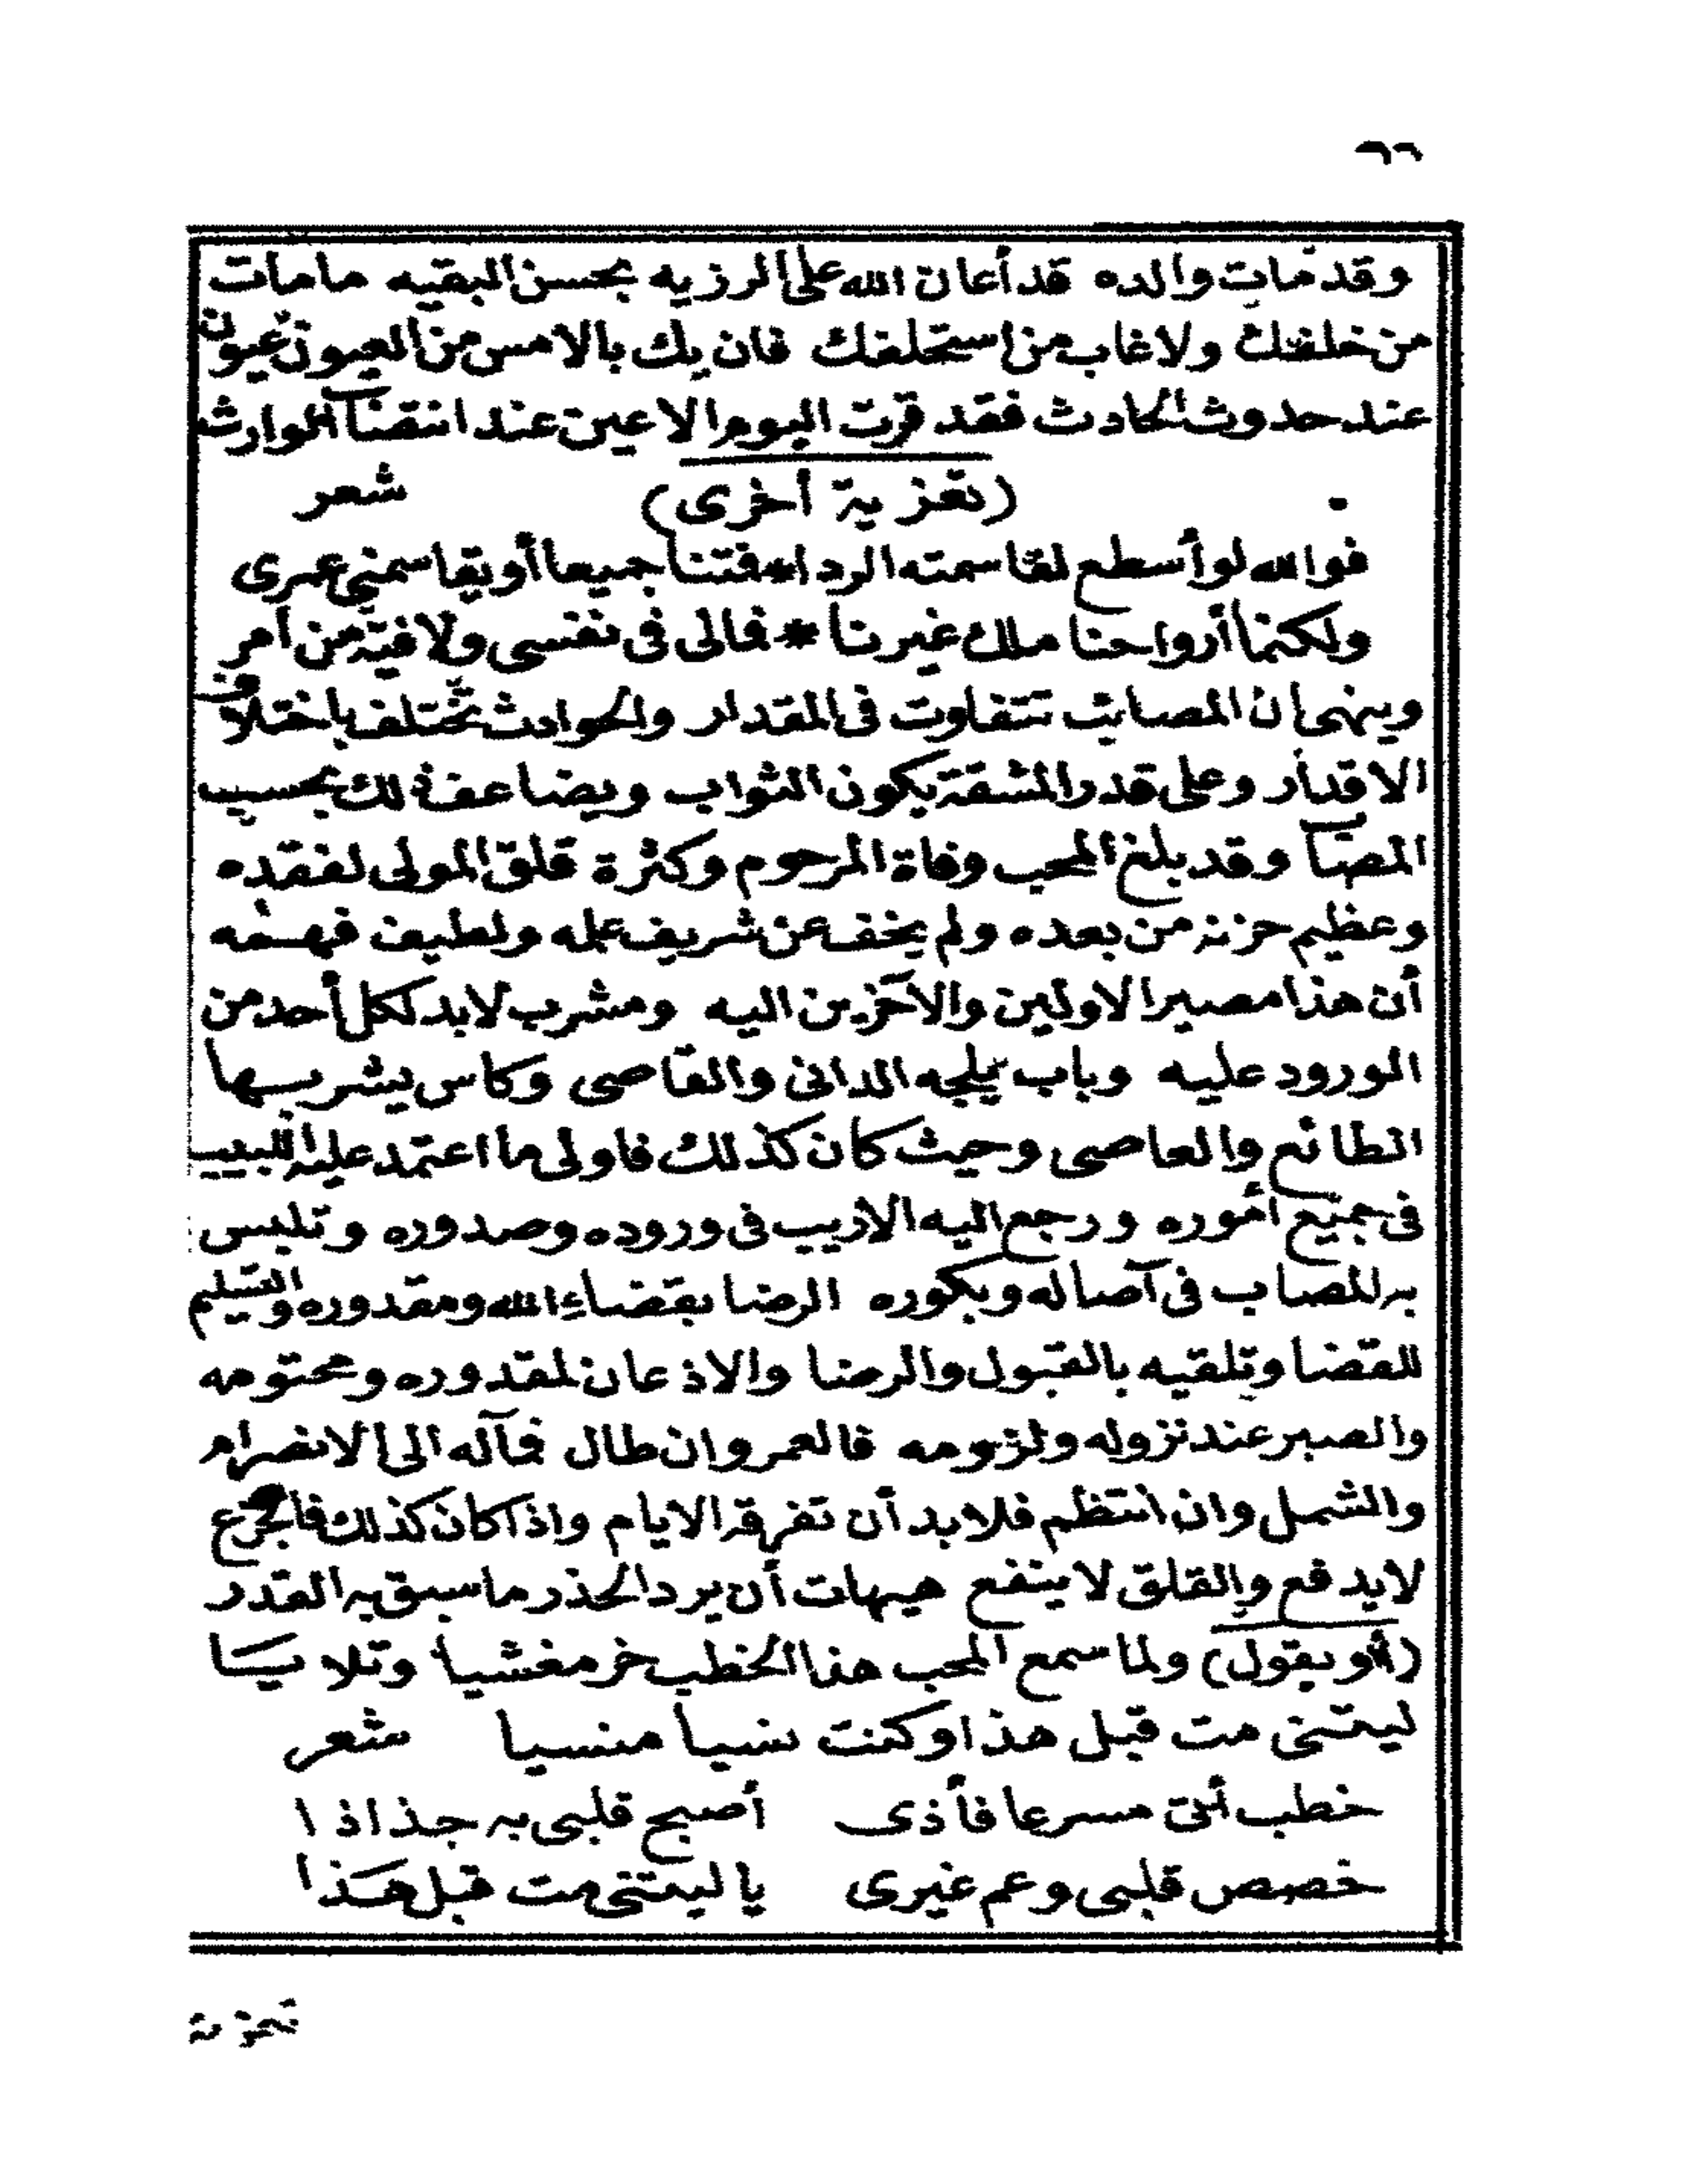 ٦٦
وقد مات والده قد أعان الله على الرزيه بحسن البقيه ما مات
من خلفك ولا غاب من استخلفك فان يك بالامس من العيون عيون
عند حدوث الحادث فقد قرت اليوم الاعين عند انتصاب الوارث
(تعزية أخرى) شعر
فوالله لو أسطع لقاسمته الردا * فمتنا جميعا أو يقاسمني عمرى
ولكنما أرواحنا ملك غيرنا * فمالى فى نفسى ولا فيه من أمر
وينهى ان المصائب تتفاوت فى المقدار والحوادث تختلف باختلاف
الاقدار وعلى قدر المشقة يكون الثواب ويضاعف ذلك بحسب
المصاب وقد بلغ المحب وفاة المرحوم وكثرة قلق المولى لفقده
وعظيم حزنه من بعده ولم يخف عن شريف علمه ولطيف فهمه
أن هذا مصير الاولين والآخرين اليه ومشرب لابد لكل أحد من
الورود عليه وباب يلجه الدانى والقاصى وكاس يشربها
الطائع والعاصى وحيث كان كذلك فاولى ما اعتمد عليه اللبيب
فى جميع أموره ورجع اليه الاريب فى وروده وصدوره وتلبس
به المصاب فى آصاله وبكوره الرضا بقضاء الله ومقدوره والتسليم
للقضا وتلقيه بالقبول والرضا والاذعان لمقدوره ومحتومه
والصبر عند نزوله ولزومه فالعمر وان طال فمآله الى الانصرام
والشمل وان انتظم فلا بد أن تفرقه الايام واذا كان كذلك فالجزع
لا يدفع والقلق لا ينفع هيهات أن يرد الحذر ما سبق به القدر
(أو يقول) ولما سمع المحب هذا الخطب خر مغشيا وتلا يا
ليتنى مت قبل هذا وكنت نسيا منسيا شعر
خطب أتى مسرعا فأذى أصبح قلبى به جذاذا
خصص قلبى وعم غيرى يا ليتنى مت قبل هذا